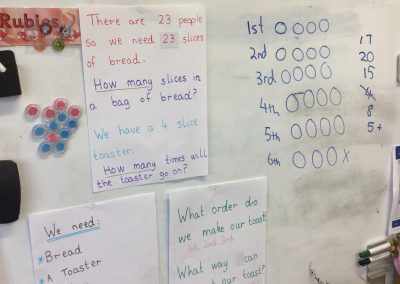 Rubies
There are 23 people
so we need 23 slices
of bread.
How many slices in
a bag of bread?
We have a 4 slice
toaster.
How many times will
the toaster go on?
1st
2nd
3rd
4th
5th
6th
17
20
15
4
8
5+
We need:
* Bread
* A Toaster
What order do
we make our toast?
1st, 2nd, 3rd
What way can
our toast?